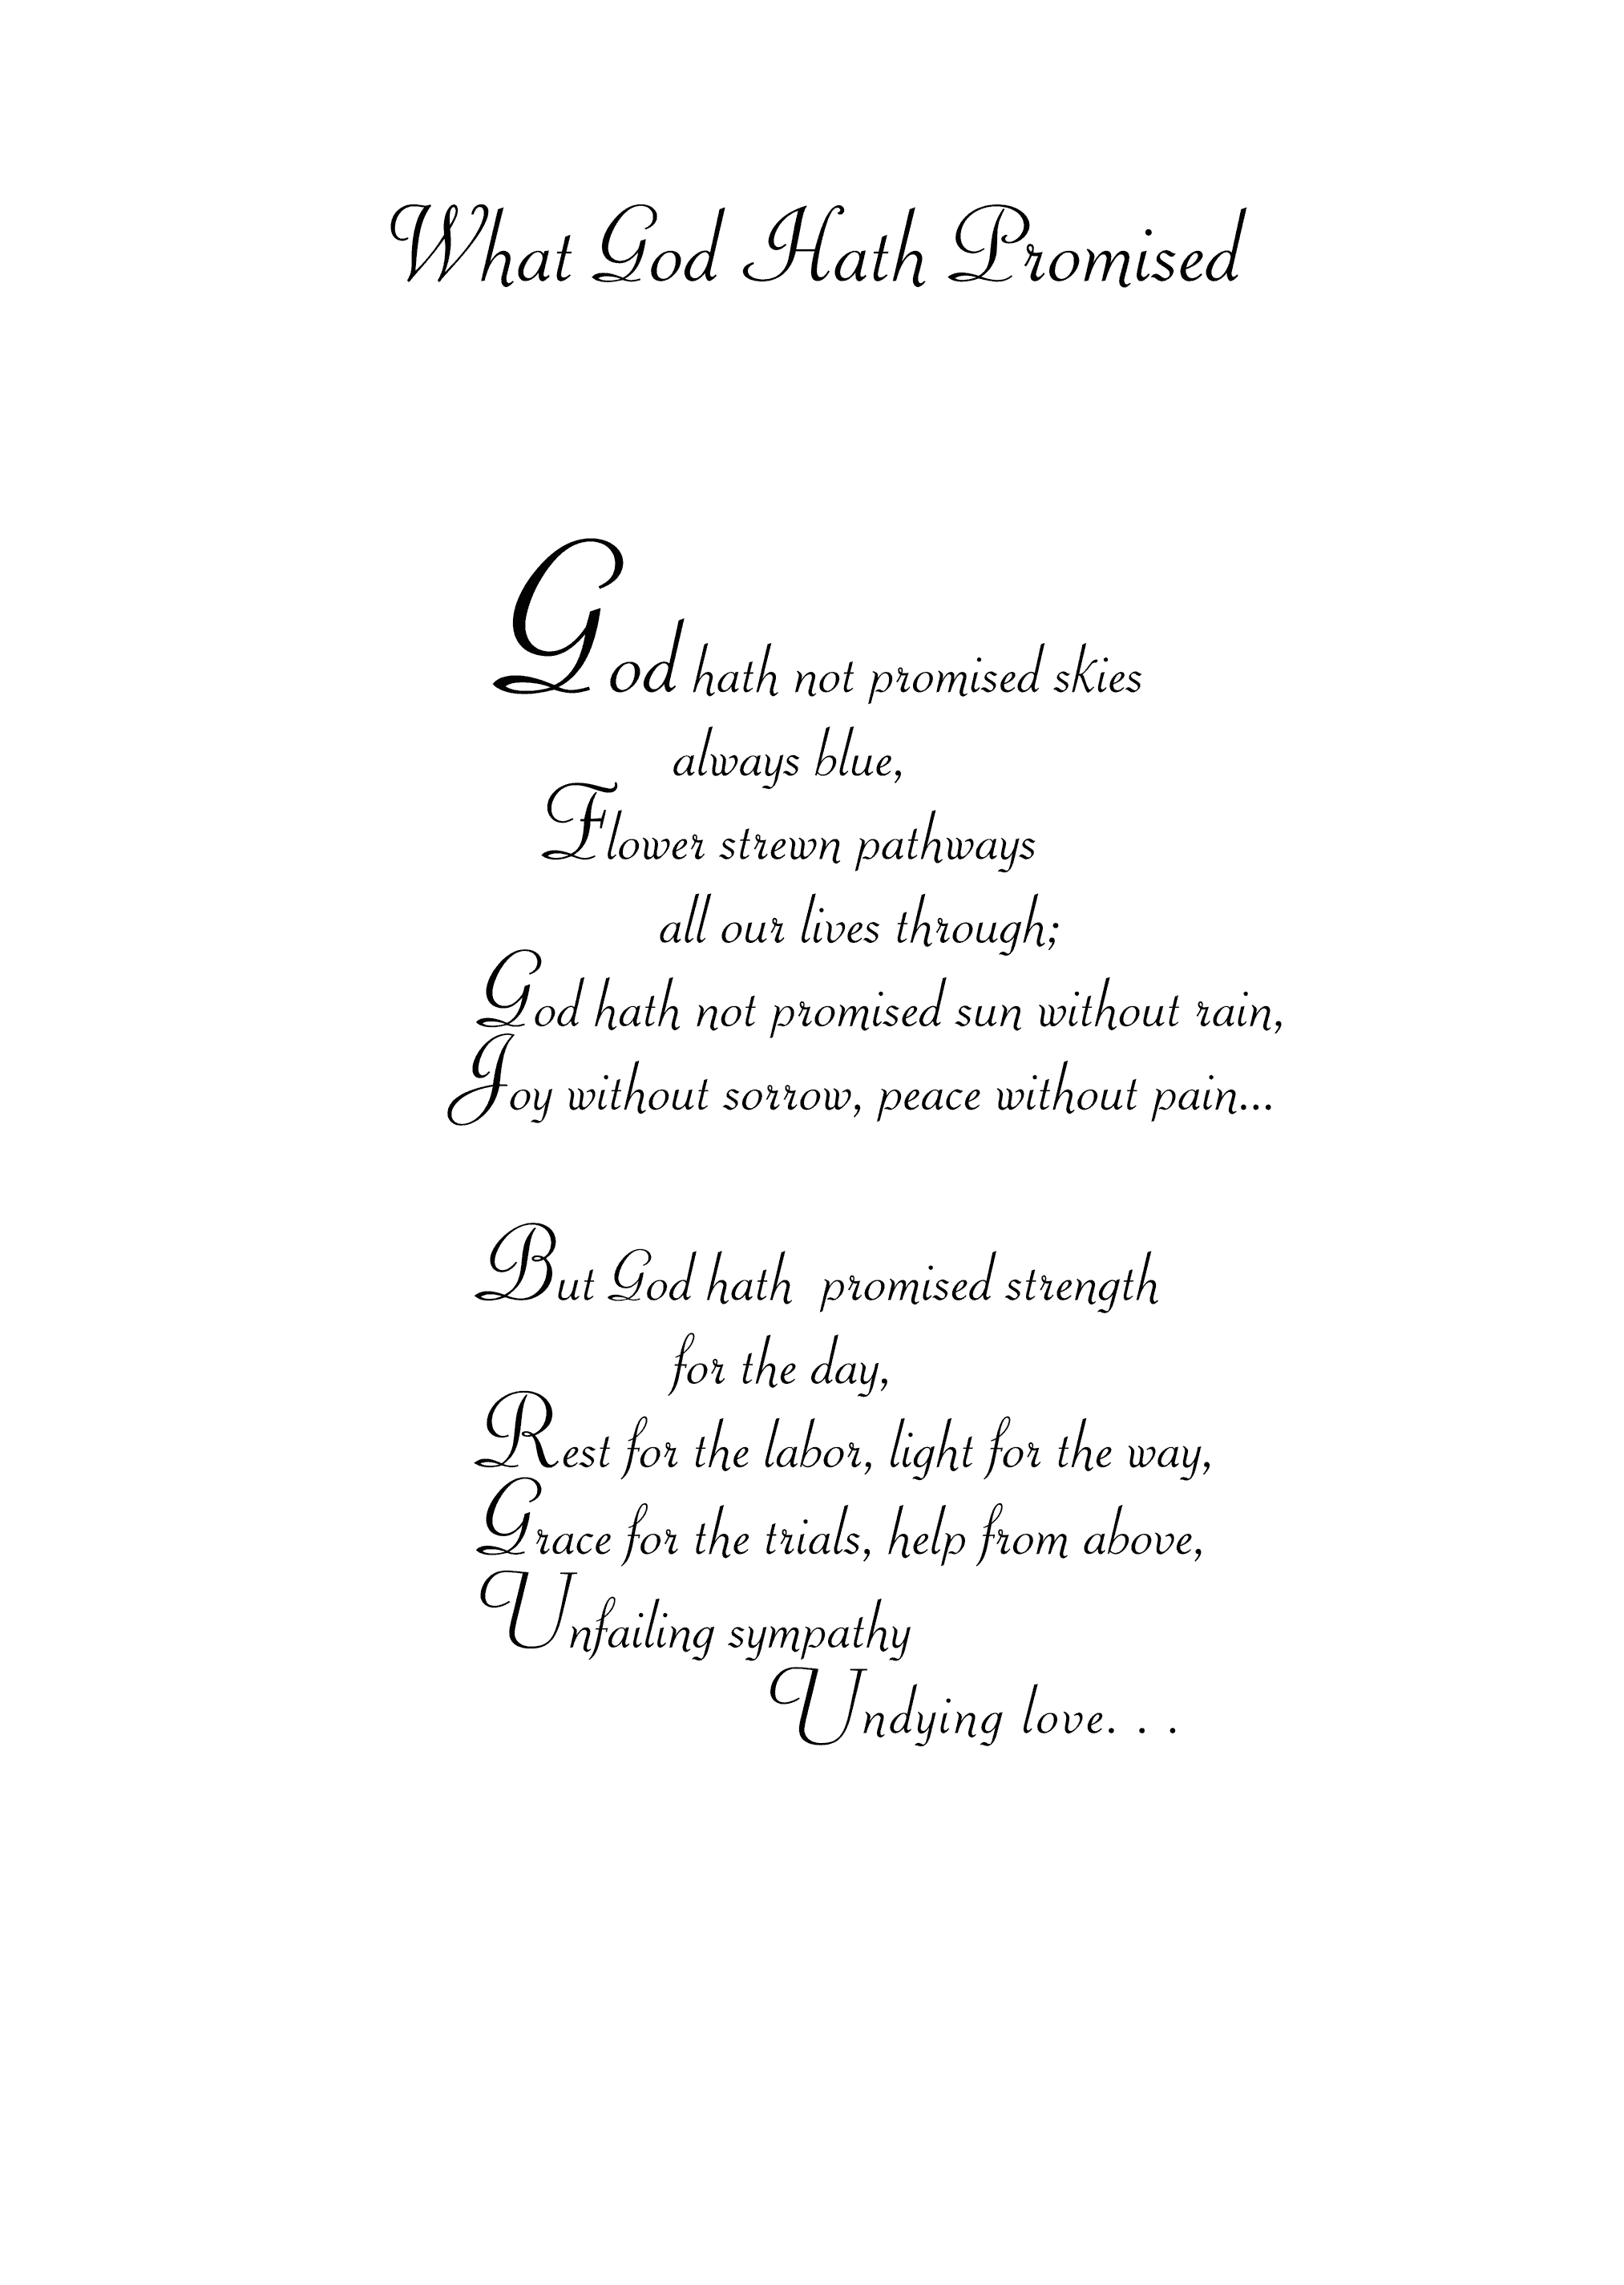 What God Hath Promised
God hath not promised skies
always blue,
Flower strewn pathways
all our lives through;
God hath not promised sun without rain,
Joy without sorrow, peace without pain...
But God hath  promised strength
for the day,
Rest for the labor, light for the way,
Grace for the trials, help from above,
Unfailing sympathy
Undying love. . .